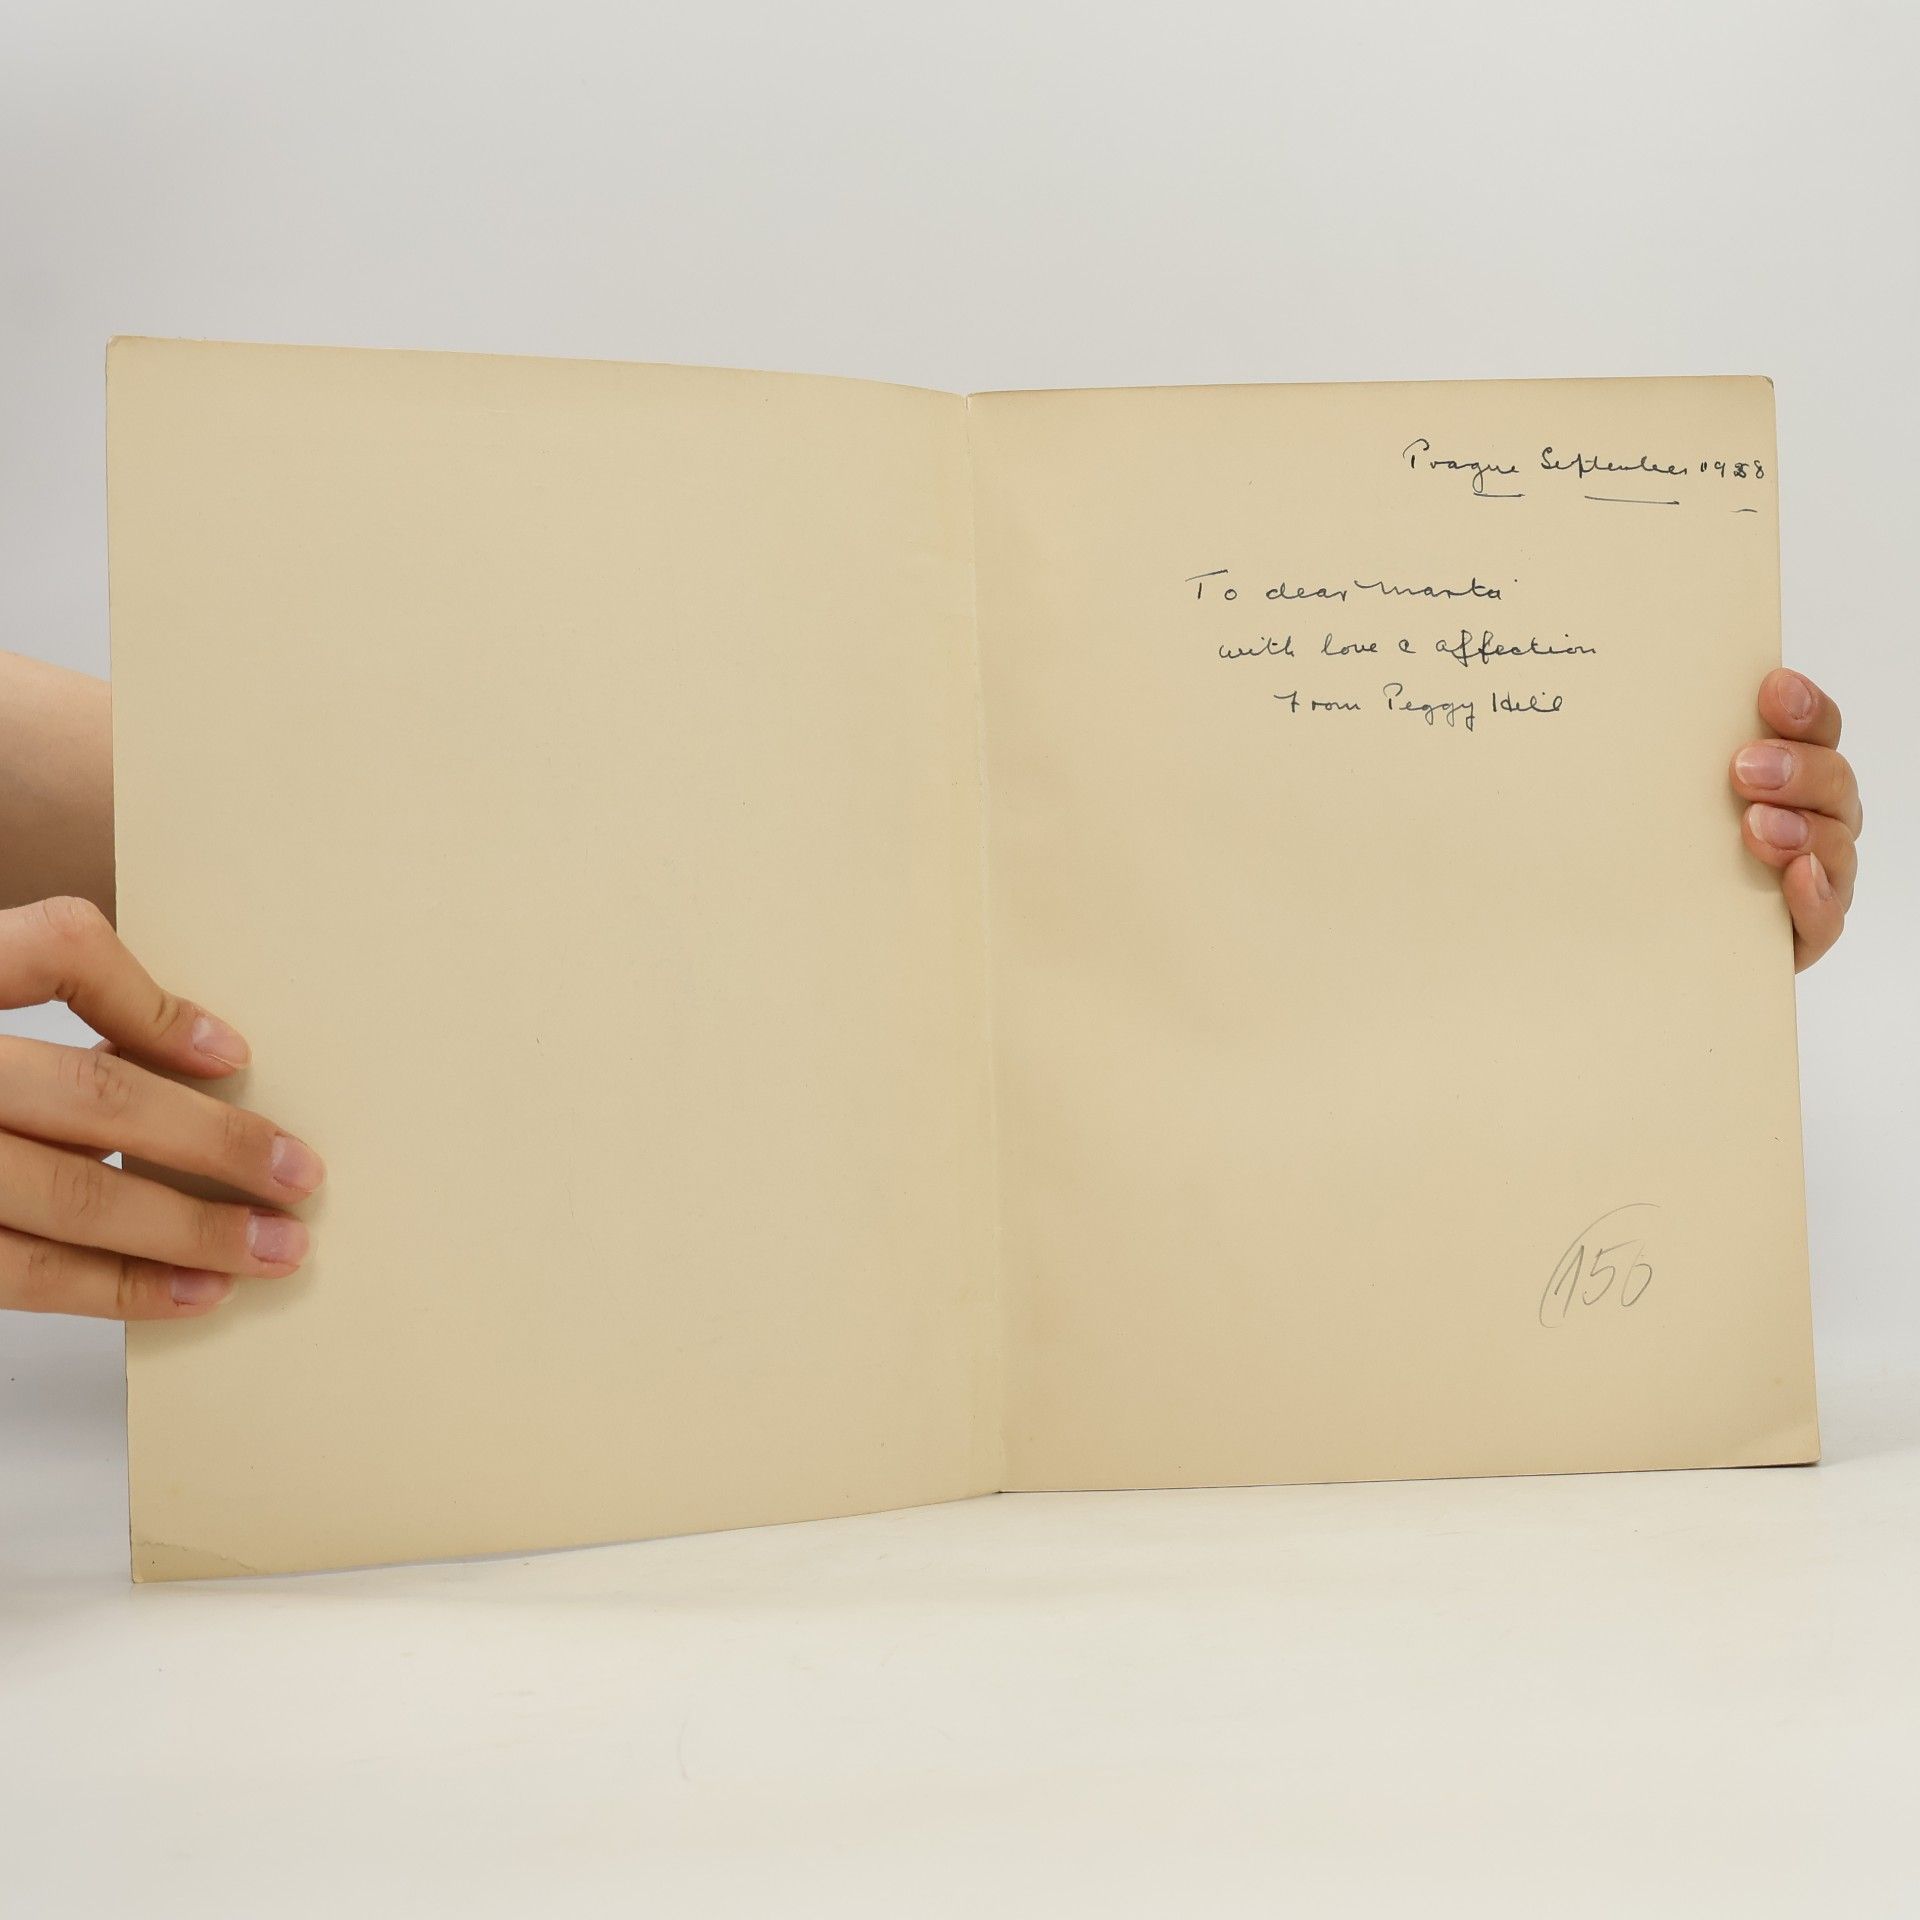 Prague September 1958
To dear Marta
with love & affection
From Peggy Hill
156